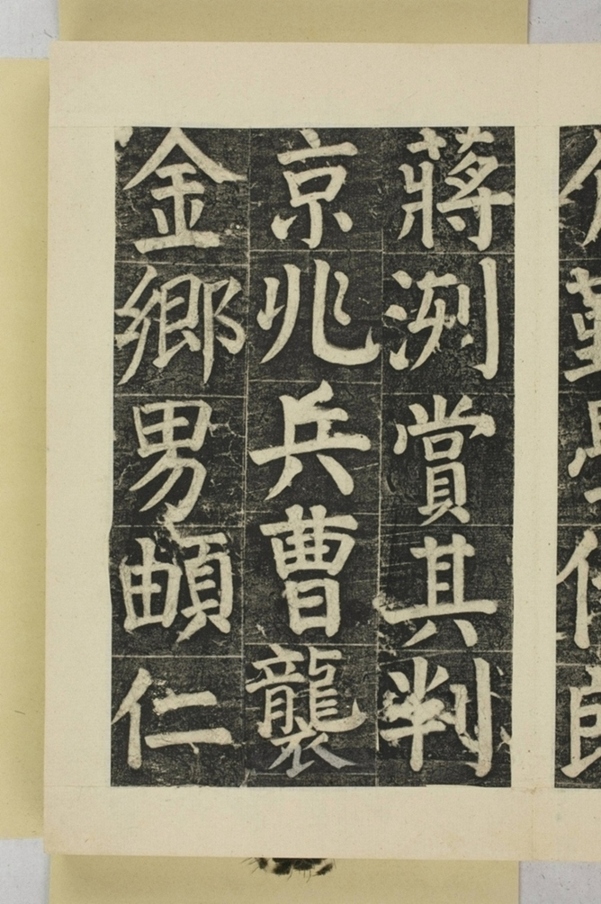 蔣洌賞其判
京兆兵曹襲
金鄉男頔仁